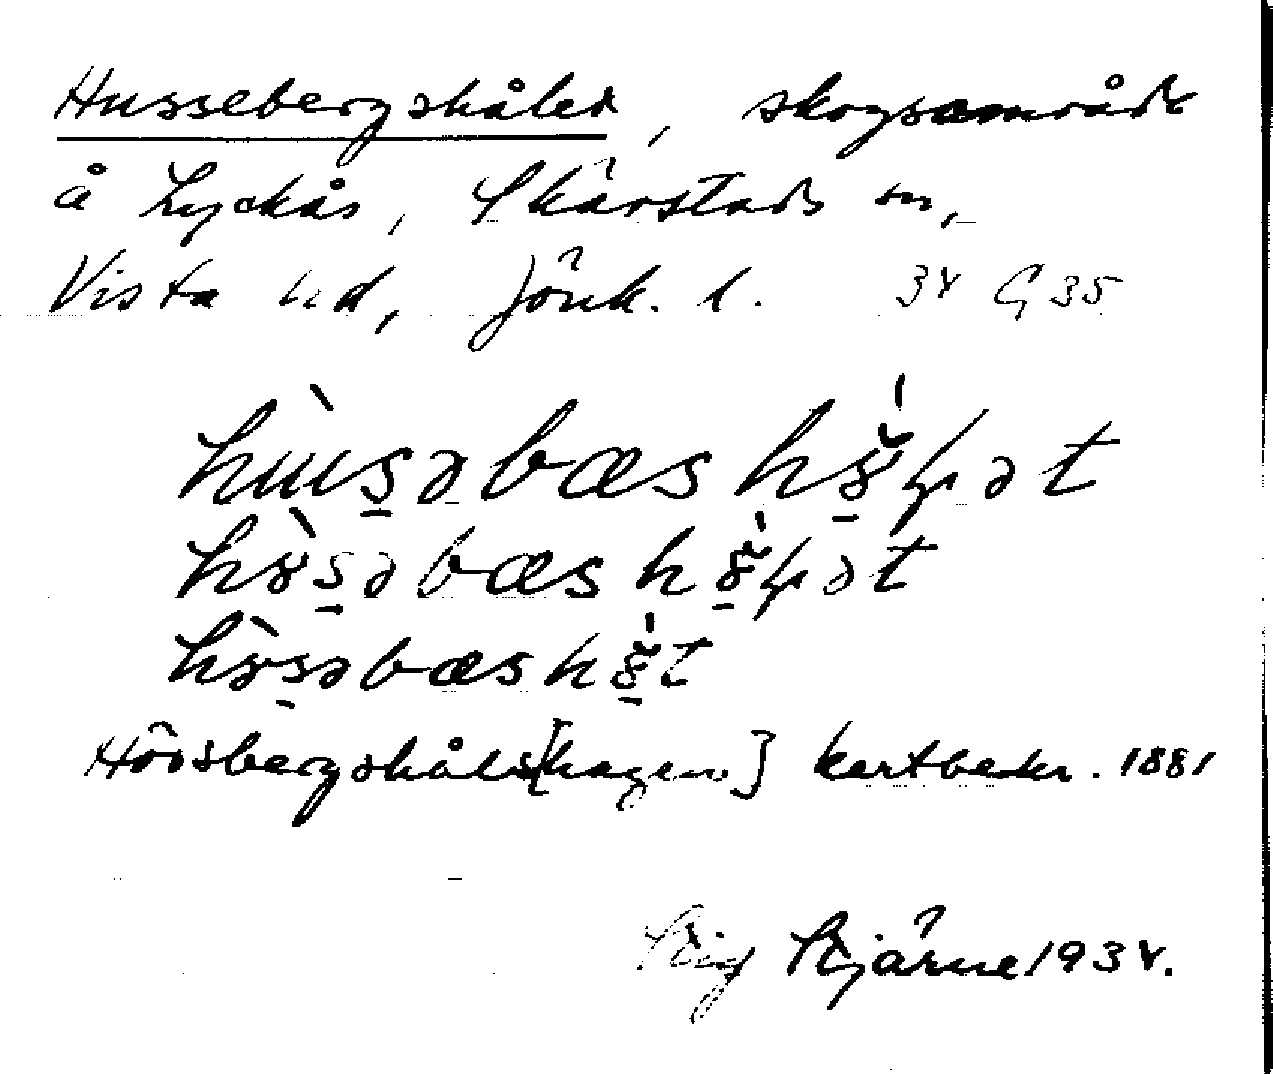 Hussebergshålet, skogsområde
å Lyckås, Skärstads sn,
Vista hd, Jönk. l. 34 G 35
hùsəbæs ət
həbæs ət
həbæs t
Hössbergshåls[hagen] kartbeskr. 1881
Stig Stjärne 1934.